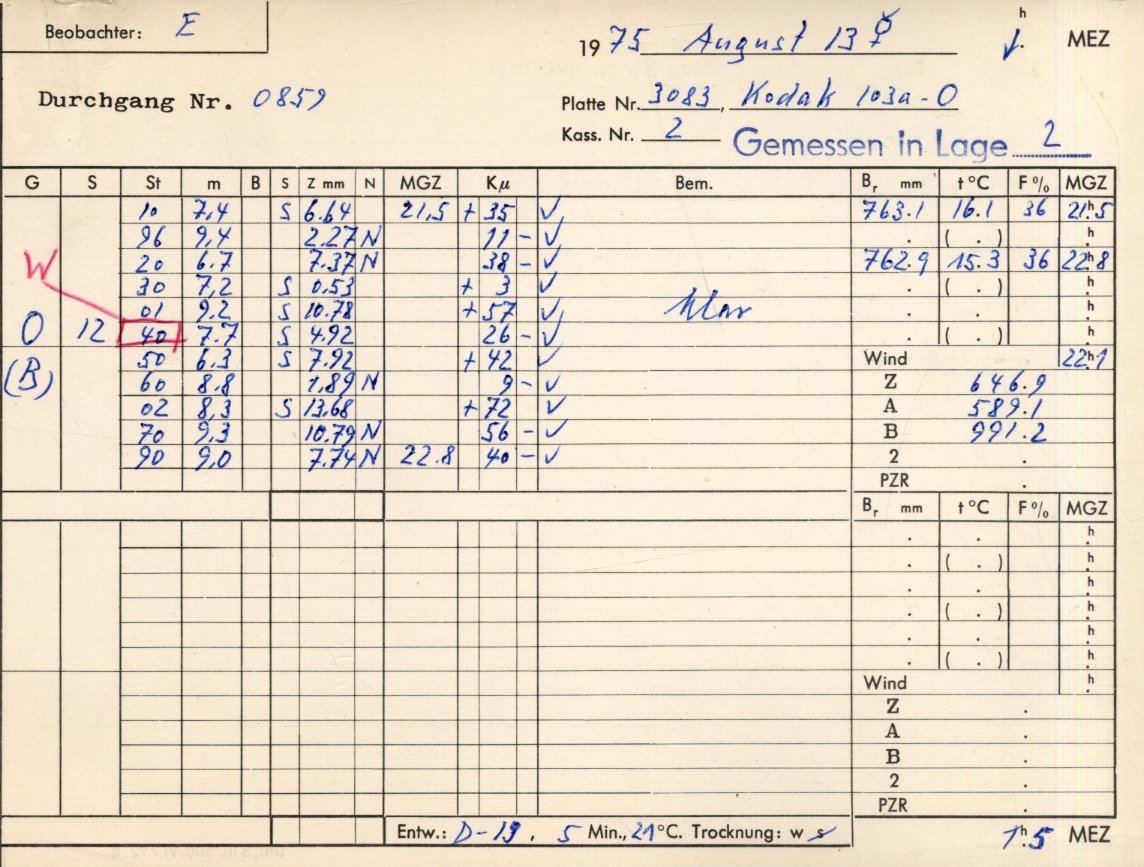 Beobachter: E
1975 August 13 ☿ h . MEZ
Durchgang Nr. 0859
Platte Nr. 3083, Kodak 103a-O
Kass. Nr. 2 Gemessen in Lage 2
G S St m B S Z mm N MGZ Kμ Bem. Br mm t °C F % MGZ
10 7,4 S 6.64 21,5 + 35 ✓ 763.1 16.1 36 21h.5
96 9,4 2.27 N 11 - ✓ . ( . ) h.
W 20 6.7 7.37 N 38 - ✓ 762.9 15.3 36 22h.8
30 7,2 S 0.53 + 3 ✓ . ( . ) h.
01 9.2 S 10.78 + 57 ✓ klar . . h.
O 12 40 7.7 S 4.92 26 - ✓ . ( . ) h.
(B) 50 6.3 S 7.92 + 42 ✓ Wind 22h1
60 8.8 1,89 N 9 - ✓ Z 646.9
02 8,3 S 13,68 + 72 ✓ A 589.1
70 9,3 10.79 N 56 - ✓ B 991.2
90 9,0 7.74 N 22.8 40 - ✓ 2 .
PZR .
Br mm t °C F % MGZ
. . h.
. ( . ) h.
. . h.
. ( . ) h.
. . h.
. ( . ) h.
Wind h.
Z .
A .
B .
2 .
PZR .
Entw.: D-19, 5 Min., 21 °C. Trocknung: w s 1h.5 MEZ